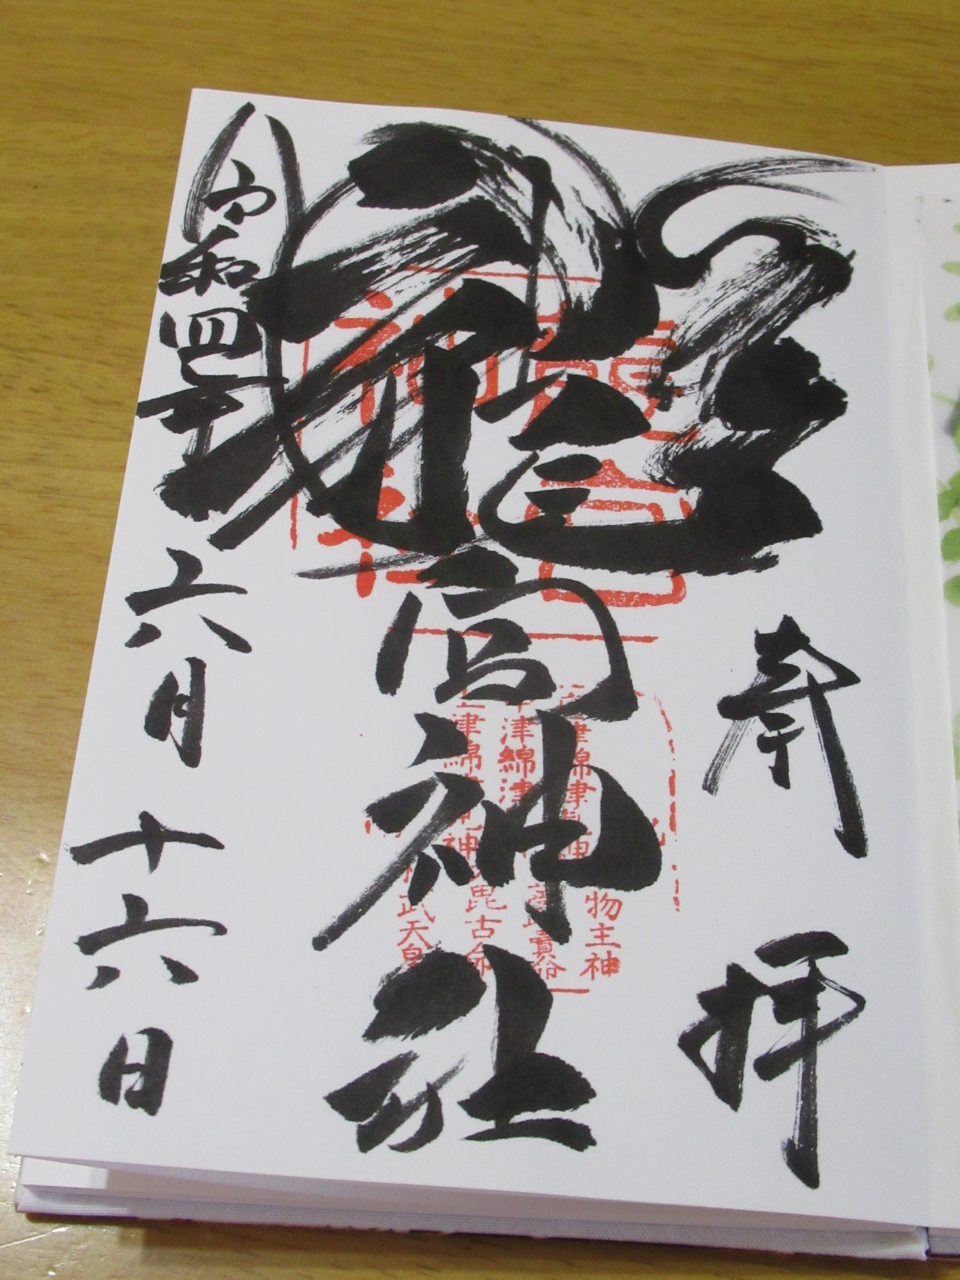 奉拝
龍宮神社
令和四年六月十六日
龍宮
神社
津綿津見神
津綿津見神
津綿津見神
物主神
毘古命
武天皇